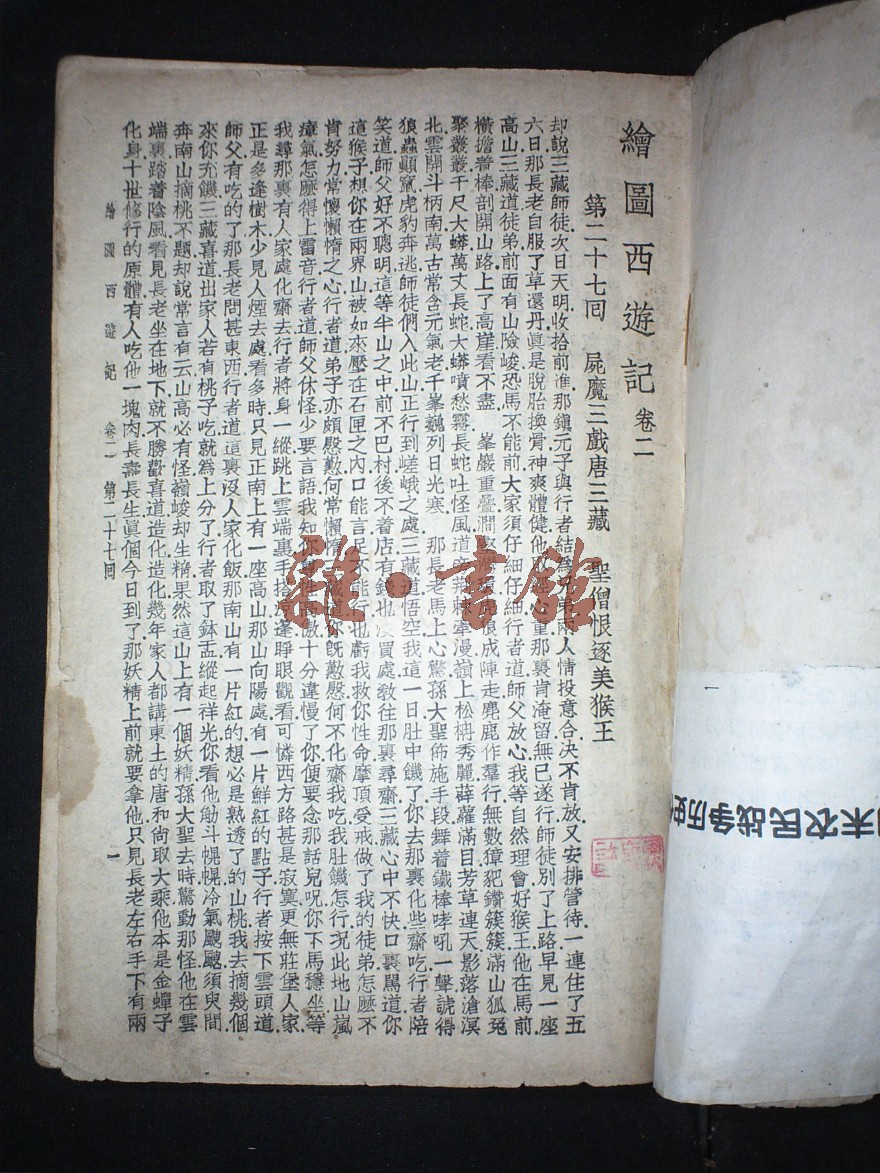 繪圖西遊記 卷二
第二十七回 屍魔三戲唐三藏 聖僧恨逐美猴王
却說三藏師徒次日天明收拾前進那鎮元子與行者結為兄弟兩人情投意合決不肯放又安排管待一連住了五
六日那長老自服了草還丹眞是脫胎換骨神爽體健他取經心重那裏肯淹留無已遂行師徒別了上路早見一座
高山三藏道徒弟前面有山險峻恐馬不能前大家須仔細仔細行者道師父放心我等自然理會好猴王他在馬前
橫擔着棒剖開山路上了高崖看不盡 峯巖重疊澗壑灣環虎狼成陣走麂鹿作羣行無數獐豝鑽簇簇滿山狐兎
聚叢叢千尺大蟒萬丈長蛇大蟒噴愁霧長蛇吐怪風道荊棘牽漫嶺上松柟秀麗薜蘿滿目芳草連天影落滄溟
北雲開斗柄南萬古常含元氣老千峯巍列日光寒 那長老馬上心驚孫大聖佈施手段舞着鐵棒哮吼一聲諕得
狼蟲顚竄虎豹奔逃師徒們入此山正行到嵯峨之處三藏道悟空我這一日肚中饑了你去那裏化些齋吃行者陪
笑道師父好不聰明這等半山之中前不巴村後不着店有錢也沒買處敎往那裏尋齋三藏心中不快口裏罵道你
這猴子想你在兩界山被如來壓在石匣之內口能言足不能行也虧我救你性命摩頂受戒做了我的徒弟怎麼不
肯努力常懷懶惰之心行者道弟子亦頗慇懃何常懶惰三藏道你旣慇懃何不化齋我吃我肚饑怎行况此地山嵐
瘴氣怎麼得上雷音行者道師父休怪少要言語我知你尊性高傲十分違慢了你便要念那話兒呪你下馬穩坐等
我尋那裏有人家處化齋去行者將身一縱跳上雲端裏手搭凉篷睜眼觀看可憐西方路甚是寂寞更無莊堡人家
正是多逢樹木少見人煙去處看多時只見正南上有一座高山那山向陽處有一片鮮紅的點子行者按下雲頭道
師父有吃的了那長老問甚東西行者道這裏沒人家化飯那南山有一片紅的想必是熟透了的山桃我去摘幾個
來你充饑三藏喜道出家人若有桃子吃就為上分了行者取了鉢盂縱起祥光你看他觔斗幌幌冷氣颼颼須臾間
奔南山摘桃不題却說常言有云山高必有怪嶺峻却生精果然這山上有一個妖精孫大聖去時驚動那怪他在雲
端裏踏着陰風看見長老坐在地下就不勝歡喜道造化造化幾年家人都講東土的唐和尙取大乘他本是金蟬子
化身十世修行的原體有人吃他一塊肉長壽長生眞個今日到了那妖精上前就要拿他只見長老左右手下有兩
繪圖西遊記 卷二 第二十七回 一
雜·書館
末农民战争历史